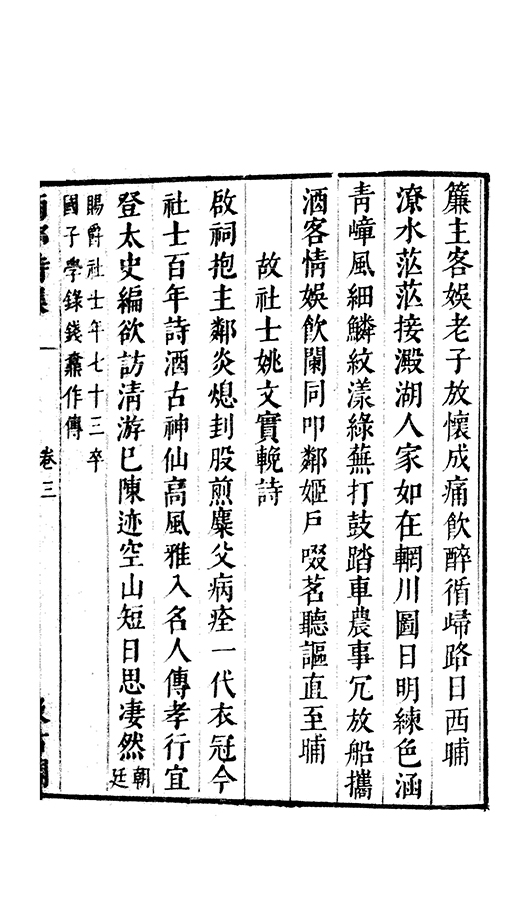 簾主客娛老子放懷成痛飲醉循歸路日西晡
潦水茫茫接澱湖人家如在輞川圖日明練色涵
青嶂風細鱗紋漾綠蕪打鼓踏車農事冗放船攜
酒客情娛飲闌同叩鄰姬戶啜茗聽謳直至晡
故社士姚文實輓詩
啟祠抱主鄰炎熄刲股煎麋父病痊一代衣冠今
社士百年詩酒古神仙高風雅入名人傳孝行宜
登太史編欲訪清游已陳迹空山短日思凄然朝廷
賜爵社士年七十三卒
國子學錄錢鼒作傳
卷三